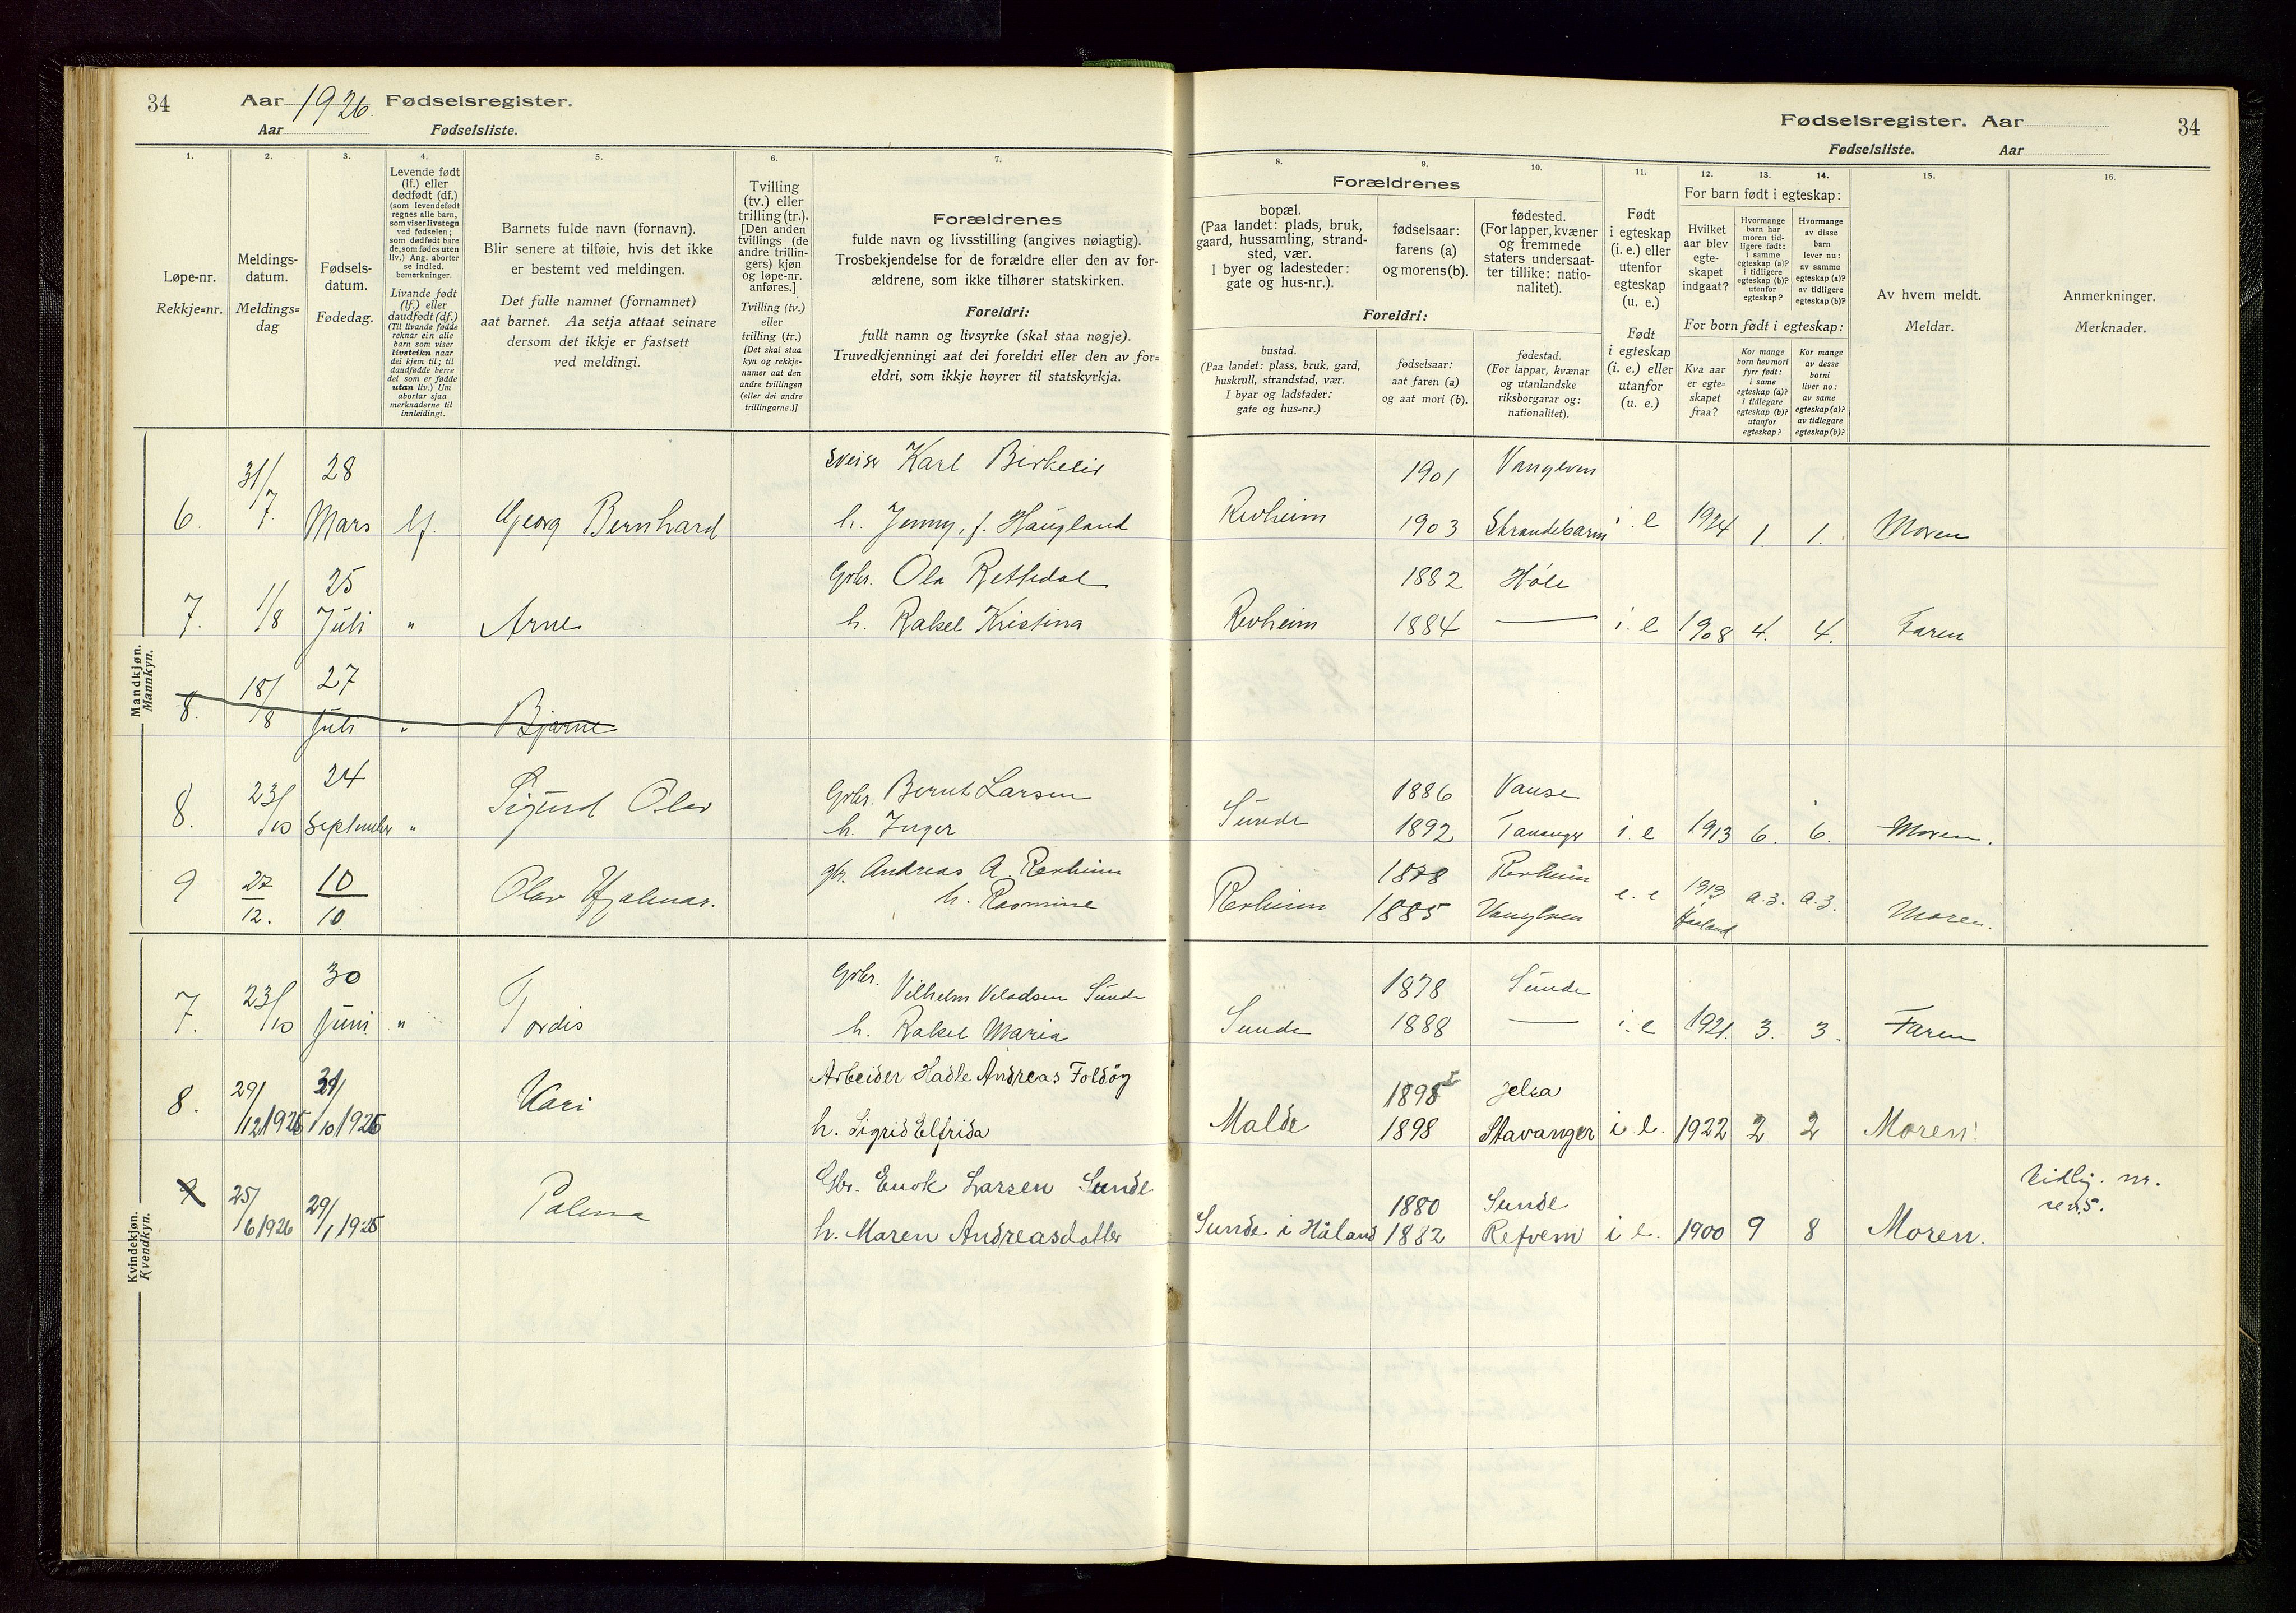 34 Aar 1926. Fødselsregister.
Aar Fødselsliste.
Fødselsregister. Aar 34
Fødselsliste. Aar
1. 2. 3. 4. 5. 6. 7. 8. 9. 10. 11. 12. 13. 14. 15. 16.
Løpe-nr.
Rekkje=nr.
Meldings-
datum.
Meldings=
dag
Fødsels-
datum.
Fødedag.
Levende født
(lf.) eller
dødfødt (df.)
(som levendefødt
regnes alle barn,
som viser livstegn
ved fødselen;
som dødfødt bare
de, som fødes uten
liv.) Ang. aborter
se indled.
bemerkninger.
Livande født
(lf.) eller
daudfødt (df.)
(Til livande fødde
reknar ein alle
barn som viser
livsteikn naar
dei kjem til; til
daudfødde berre
dei som er fødde
utan liv.) Um
abortar sjaa
merknaderne til
innleidingi.
Barnets fulde navn (fornavn).
Blir senere at tilføie, hvis det ikke
er bestemt ved meldingen.
Det fulle namnet (fornamnet)
aat barnet. Aa setja attaat seinare
dersom det ikkje er fastsett
ved meldingi.
Tvilling
(tv.) eller
trilling (tr.).
[Den anden
tvillings (de
andre trillin-
gers) kjøn
og løpe-nr.
anføres.]
Tvilling (tv.)
eller
trilling (tr.)
[Det skal staa
kyn og rekkje-
numer aat den
andre tvillingen
(eller dei andre
trillingarne.)]
Forældrenes
fulde navn og livsstilling (angives nøiagtig).
Trosbekjendelse for de forældre eller den av for-
ældrene, som ikke tilhører statskirken.
Foreldri:
fullt namn og livsyrke (skal staa nøgje).
Truvedkjenningi aat dei foreldri eller den av for=
eldri, som ikkje høyrer til statskyrkja.
Forældrenes
bopæl.
(Paa landet: plads, bruk,
gaard, hussamling, strand-
sted, vær.
I byer og ladesteder:
gate og hus-nr.).
fødselsaar:
farens (a)
og morens (b).
fødested.
(For lapper, kvæner
og fremmede
staters undersaat-
ter tillike: natio-
nalitet).
Foreldri:
bustad.
(Paa landet: plass, bruk, gard,
huskrull, strandstad, vær.
I byar og ladstader:
gate og hus=nr.)
fødselsaar:
aat faren (a)
og aat mori (b).
fødestad.
(For lappar, kvænar
og utanlandske
riksborgarar og:
nationalitet).
Født
i egteskap
(i. e.) eller
utenfor
egteskap
(u. e.)
Født
i egteskap
(i. e.) eller
utanfor
egteskap
(u. e.)
For barn født i egteskap:
Hvilket
aar blev
egte-
skapet
indgaat?
Hvormange
barn har
moren tid-
ligere født:
i samme
egteskap (a)?
i tidligere
egteskap (b)?
utenfor
egteskap?
Hvormange
av disse
barn
lever nu:
av samme
egteskap (a)?
av tidligere
egteskap (b)?
For born født i egteskap:
Kva aar
er egte=
skapet
fraa?
Kor mange
born hev mori
fyrr født:
i same
egteskap (a)?
i tidlegare
egteskap (b)?
utanfor
egteskap?
Kor mange
av desse
borni
liver no:
av same
egteskap (a)?
av tidlegare
egteskap (b)?
Av hvem meldt.
Meldar.
Anmerkninger.
Merknader.
Mandkjøn.
Mannkyn.
31/7. 28 sveiser Karl Birkeli 1901 Vanylven
6. Mars lf. Georg Bernhard h. Jenny, f. Haugland Revheim 1903 Strandebarm i. e 1924 1. 1. Moren
25 Gbr. Ola Rettedal 1882 Höle
7. 1/8 Juli " Arne h. Rakel Kristina Revheim 1884 — i. e 1908 4. 4. Faren
18/8 27
8. Juli " Bjarne
24 Gbr. Bernt Larsen 1886 Vanse
8. 23/10 September " Sigurd Olav h. Inger Sunde 1892 Tananger i. e 1913 6. 6. Moren.
gbr. Andreas A. Revheim 1878 Revheim
9 27/12. 10/10 Olav Hjalmar. h. Rasmine Revheim 1885 Vanylven e. e 1913 Haaland a. 3. a. 3. Moren.
Kvindekjøn.
Kvendkyn.
30 Gbr. Vilhelm Sunde 1878 Sunde
7. 23/10 Juni " Tordis h. Rakel Maria Sunde 1888 — i. e 1921. 3. 3. Faren
Arbeider Hadle Andreas Foldøy 1898 Jelsa
8. 29/12 1926 31/10 1926 Kari h. Sigrid Elfrida Malde 1898 Stavanger i e. 1922 2 2 Moren.
Gbr. Enok Larsen Sunde 1880 Sunde
9 25/6 1926 29/1 1926 Palma h. Maren Andreasdatter Sunde i Håland 1882 Refvem i e. 1900 9 8 Moren.
tidlig. nr.